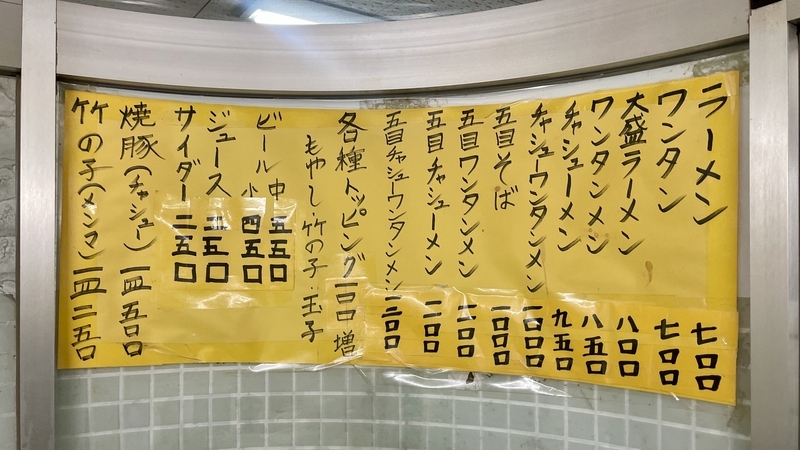 ラーメン 七〇〇
ワンタン 七〇〇
大盛ラーメン 八〇〇
ワンタンメン 八五〇
チャシューメン 九五〇
チャシュウワンタンメン 一〇〇〇
五目そば 一〇〇〇
五目ワンタンメン
五目チャシューメン
五目チャシューワンタンメン
各種トッピング 一〇〇増
もやし・竹の子・玉子
ビール 中 五五〇
小 四五〇
ジュース 二五〇
サイダー 二五〇
焼豚(チャシュー) 一皿 五〇〇
竹の子(メンマ) 一皿 二五〇